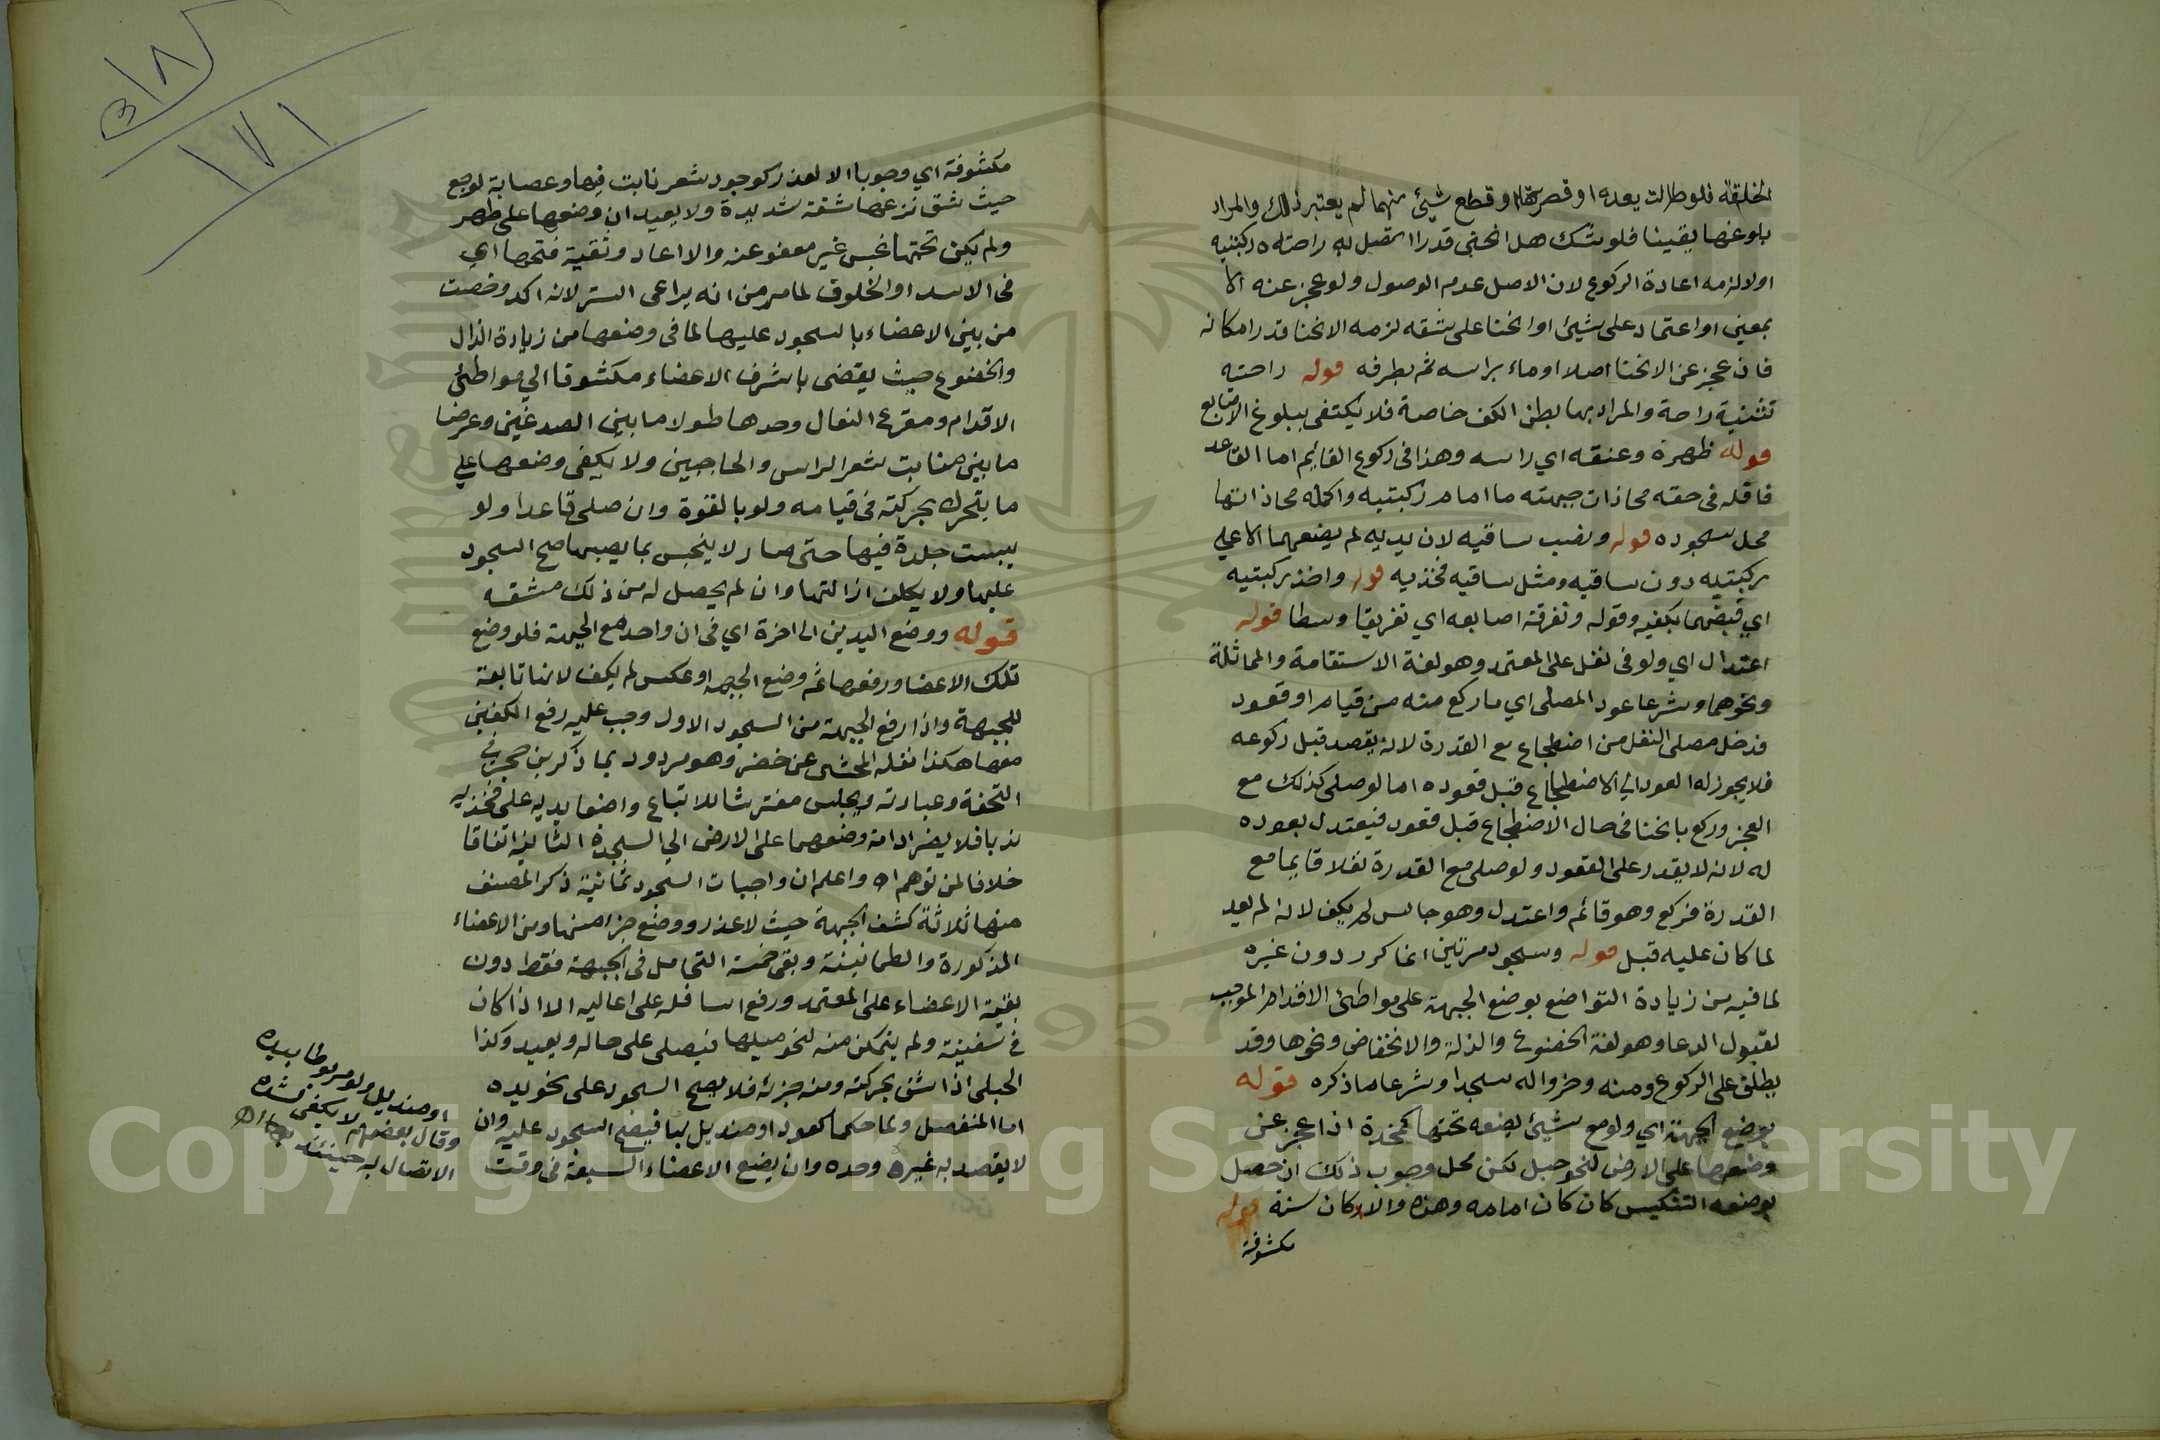 الخلقة فلو طالت يده او قصرتا او قطع شيئ منهما لم يعتبر ذلك والمراد
بلوغها يقينا فلو شك هل انحنى قدرا تصل به راحتاه ركبتيه
اولا لزمه اعادة الركوع لان الاصل عدم الوصول ولو عجز عنه الا
بمعين او اعتماد على شيئ او انحنا على شقه لزمه الانحنا قدر امكانه
فان عجز عن الانحنا اصلا اوماء براسه ثم بطرفه قوله راحتيه
تثنية راحة والمراد بها بطن الكف خاصة فلا يكتفى ببلوغ الاصابع
قوله ظهره وعنقه اي راسه وهذا في ركوع القايم اما القاعد
فاقله في حقه محاذات جبهته ما امام ركبتيه واكمله محاذاتها
محل سجوده قوله ونصب ساقيه لان يديه لم يضعهما الا على
ركبتيه دون ساقيه ومثل ساقيه فخذيه قوله واخذ ركبتيه
اي قبضهما بكفيه وقوله وتفرقة اصابعه اي تفريقا وسطا قوله
اعتدال اي ولو في نفل على المعتمد وهو لغة الاستقامة والمماثلة
ونحوهما وشرعا عود المصلى اي ما ركع منه من قيام او قعود
فدخل مصلى النفل من اضطجاع مع القدرة لانه يقصد قبل ركوعه
فلا يجوز له العود الى الاضطجاع قبل قعوده اما لو صلى كذلك مع
العجز وركع بانحنا في حال الاضطجاع قبل قعود فيعتدل بعوده
له لانه لا يقدر على القعود ولو صلى مع القدرة نفلا قايما مع
القدرة فركع وهو قائم واعتدل وهو جالس لم يكف لانه لم يعد
لما كان عليه قبل قوله وسجود مرتين انما كرر دون غيره
لما فيه من زيادة التواضع بوضع الجبهة على مواطئ الاقدام الموجب
لقبول الدعا وهو لغة الخضوع والذلة والانخفاض ونحوها وقد
يطلق على الركوع ومنه وخروا له سجدا وشرعا ما ذكره قوله
بوضع الجبهة اي ولو مع شيئ يضعه تحتها كمخدة اذا عجز عن
وضعها على الارض لنحو حبل لكن محل وجوب ذلك ان حصل
بوضعه التنكيس كان كان امامه وهذه والا كان سنة قوله
مكشوفة
٣١٨
١٧١
مكشوفة اي وجوبا الا لعذر كوجود شعر نابت فيها وعصابة لوجع
حيث شق نزعها شقة شديدة ولا يعيد ان وضعها على طهر
ولم يكن تحتها نجس غير معفو عنه والا اعاد وثقبة فتحها اي
في الانسداد الخلوق لما مر من انه يراعى الستر لانه اكد وخصت
من بين الاعضاء بالسجود عليها لما في وضعها من زيادة الذل
والخضوع حيث يقضى باشرف الاعضاء مكشوفا الي مواطئ
الاقدام ومقرع النعال وحدها طولا ما بين الصدغين وعرضا
ما بين منابت شعر الراس والحاجبين ولا يكفي وضعها على
ما يتحرك بحركته في قيامه ولو بالقوة وان صلى قاعدا ولو
يبست جلدة فيها حتى صار لا يحس بما يصيبها صح السجود
عليها ولا يكلف ازالتها وان لم يحصل له من ذلك مشقة
قوله ووضع اليدين الى اخره اي في ان واحد مع الجبهة فلو وضع
تلك الاعضا ورفعها ثم وضع الجبهة او عكس لم يكف لانها تابعة
للجبهة واذا رفع الجبهة من السجود الاول وجب عليه رفع الكفين
معها هكذا نقله المحشى عن خضر وهو مردود بما ذكر بن حجر في
التحفة وعبارته ويجلس مفترشا للاتباع واضعا يديه على فخذيه
ندبا فلا يضر ادامة وضعهما على الارض الي السجدة الثانية اتفاقا
خلافا لمن توهم اه واعلم ان واجبات السجود ثمانية ذكر المصنف
منها ثلاثة كشف الجبهة حيث لا عذر ووضع جزء منها ومن الاعضاء
المذكورة والطمانينة وبقي خمسة التحامل في الجبهة فقط دون
بقية الاعضاء على المعتمد ورفع اسافله على اعاليه الا اذا كان
في سفينة ولم يتمكن منه لنحو ميلها فيصلى على حاله ويعيد وكذا
الحبلى اذا شق بحركته ومنه جزئه فلا يصح السجود على نحو يده
اما المنفصل ولما حكما كعود او منديل بيده فيضح السجود عليه وان
لا يقصد به غيره وحده وان يضع الاعضاء السبعة في وقت
او منديل ولو مربوطا بيده
وقال بعضهم لا يكفي شده
الاتصال به حينئذ اه